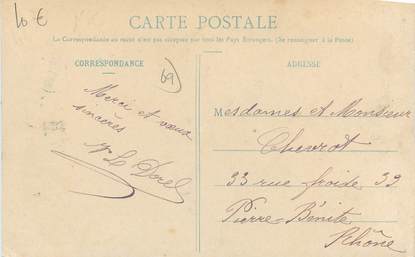 10 €
CARTE POSTALE
La Correspondance au recto n'est pas acceptée par tous les Pays Étrangers. (Se renseigner à la Poste).
CORRESPONDANCE
69
Merci et vœux
sincères
ADRESSE
Mesdames et Monsieur
Chevrot
33 rue froide 33
Pierre-Bénite
Rhône